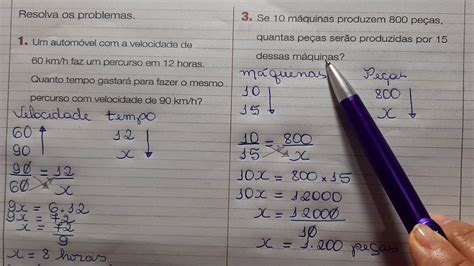 Resolva os problemas.
1. Um automóvel com a velocidade de
60 km/h faz um percurso em 12 horas.
Quanto tempo gastará para fazer o mesmo
percurso com velocidade de 90 km/h?
Velocidade tempo
60 12
90 x
90 = 12
60 x
9x = 6.12
9x = 72
x = 72
9
x = 8 horas
3. Se 10 máquinas produzem 800 peças,
quantas peças serão produzidas por 15
dessas máquinas?
máquenas Peças
10 800
15 x
10 = 800
15 x
10x = 800 x 15
10x = 12000
x = 12000
10
x = 1.200 peças